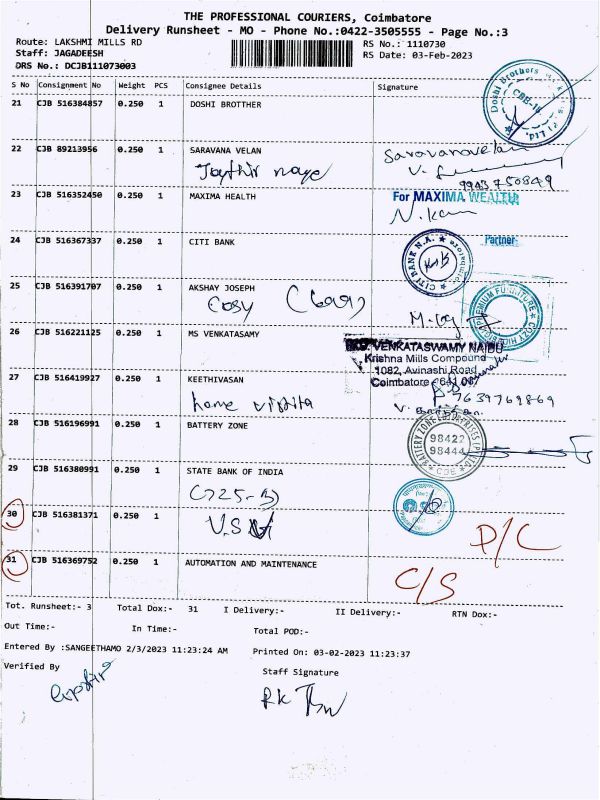 THE PROFESSIONAL COURIERS, Coimbatore
Delivery Runsheet - MO - Phone No.:0422-3505555 - Page No.:3
Route: LAKSHMI MILLS RD
RS No.: 1110730
Staff: JAGADEESH
RS Date: 03-Feb-2023
DRS No.: DCJB111073003
S No Consignment No Weight PCS Consignee Details Signature
21 CJB 516384857 0.250 1 DOSHI BROTTHER
Doshi Brothers
CBE-18
22 CJB 89213956 0.250 1 SARAVANA VELAN
Saravanavelan
9943750849
23 CJB 516352450 0.250 1 MAXIMA HEALTH
For MAXIMA WEALTH
24 CJB 516367337 0.250 1 CITI BANK
CITI BANK N.A.
COIMBATORE
Partner
25 CJB 516391707 0.250 1 AKSHAY JOSEPH
COSY
PREMIUM FURNITURE
26 CJB 516221125 0.250 1 MS VENKATASAMY
VENKATASWAMY NAIDU
Krishna Mills Compound
1082, Avinashi Road
Coimbatore - 641 037
27 CJB 516419927 0.250 1 KEETHIVASAN
7639769869
home
28 CJB 516196991 0.250 1 BATTERY ZONE
BATTERY ZONE ENTERPRISES
98422
98444
CBE
29 CJB 516380991 0.250 1 STATE BANK OF INDIA
30 CJB 516381371 0.250 1
D/C
31 CJB 516369752 0.250 1 AUTOMATION AND MAINTENANCE
C/S
Tot. Runsheet:- 3 Total Dox:- 31 I Delivery:- II Delivery:- RTN Dox:-
Out Time:- In Time:- Total POD:-
Entered By :SANGEETHAMO 2/3/2023 11:23:24 AM Printed On: 03-02-2023 11:23:37
Verified By Staff Signature